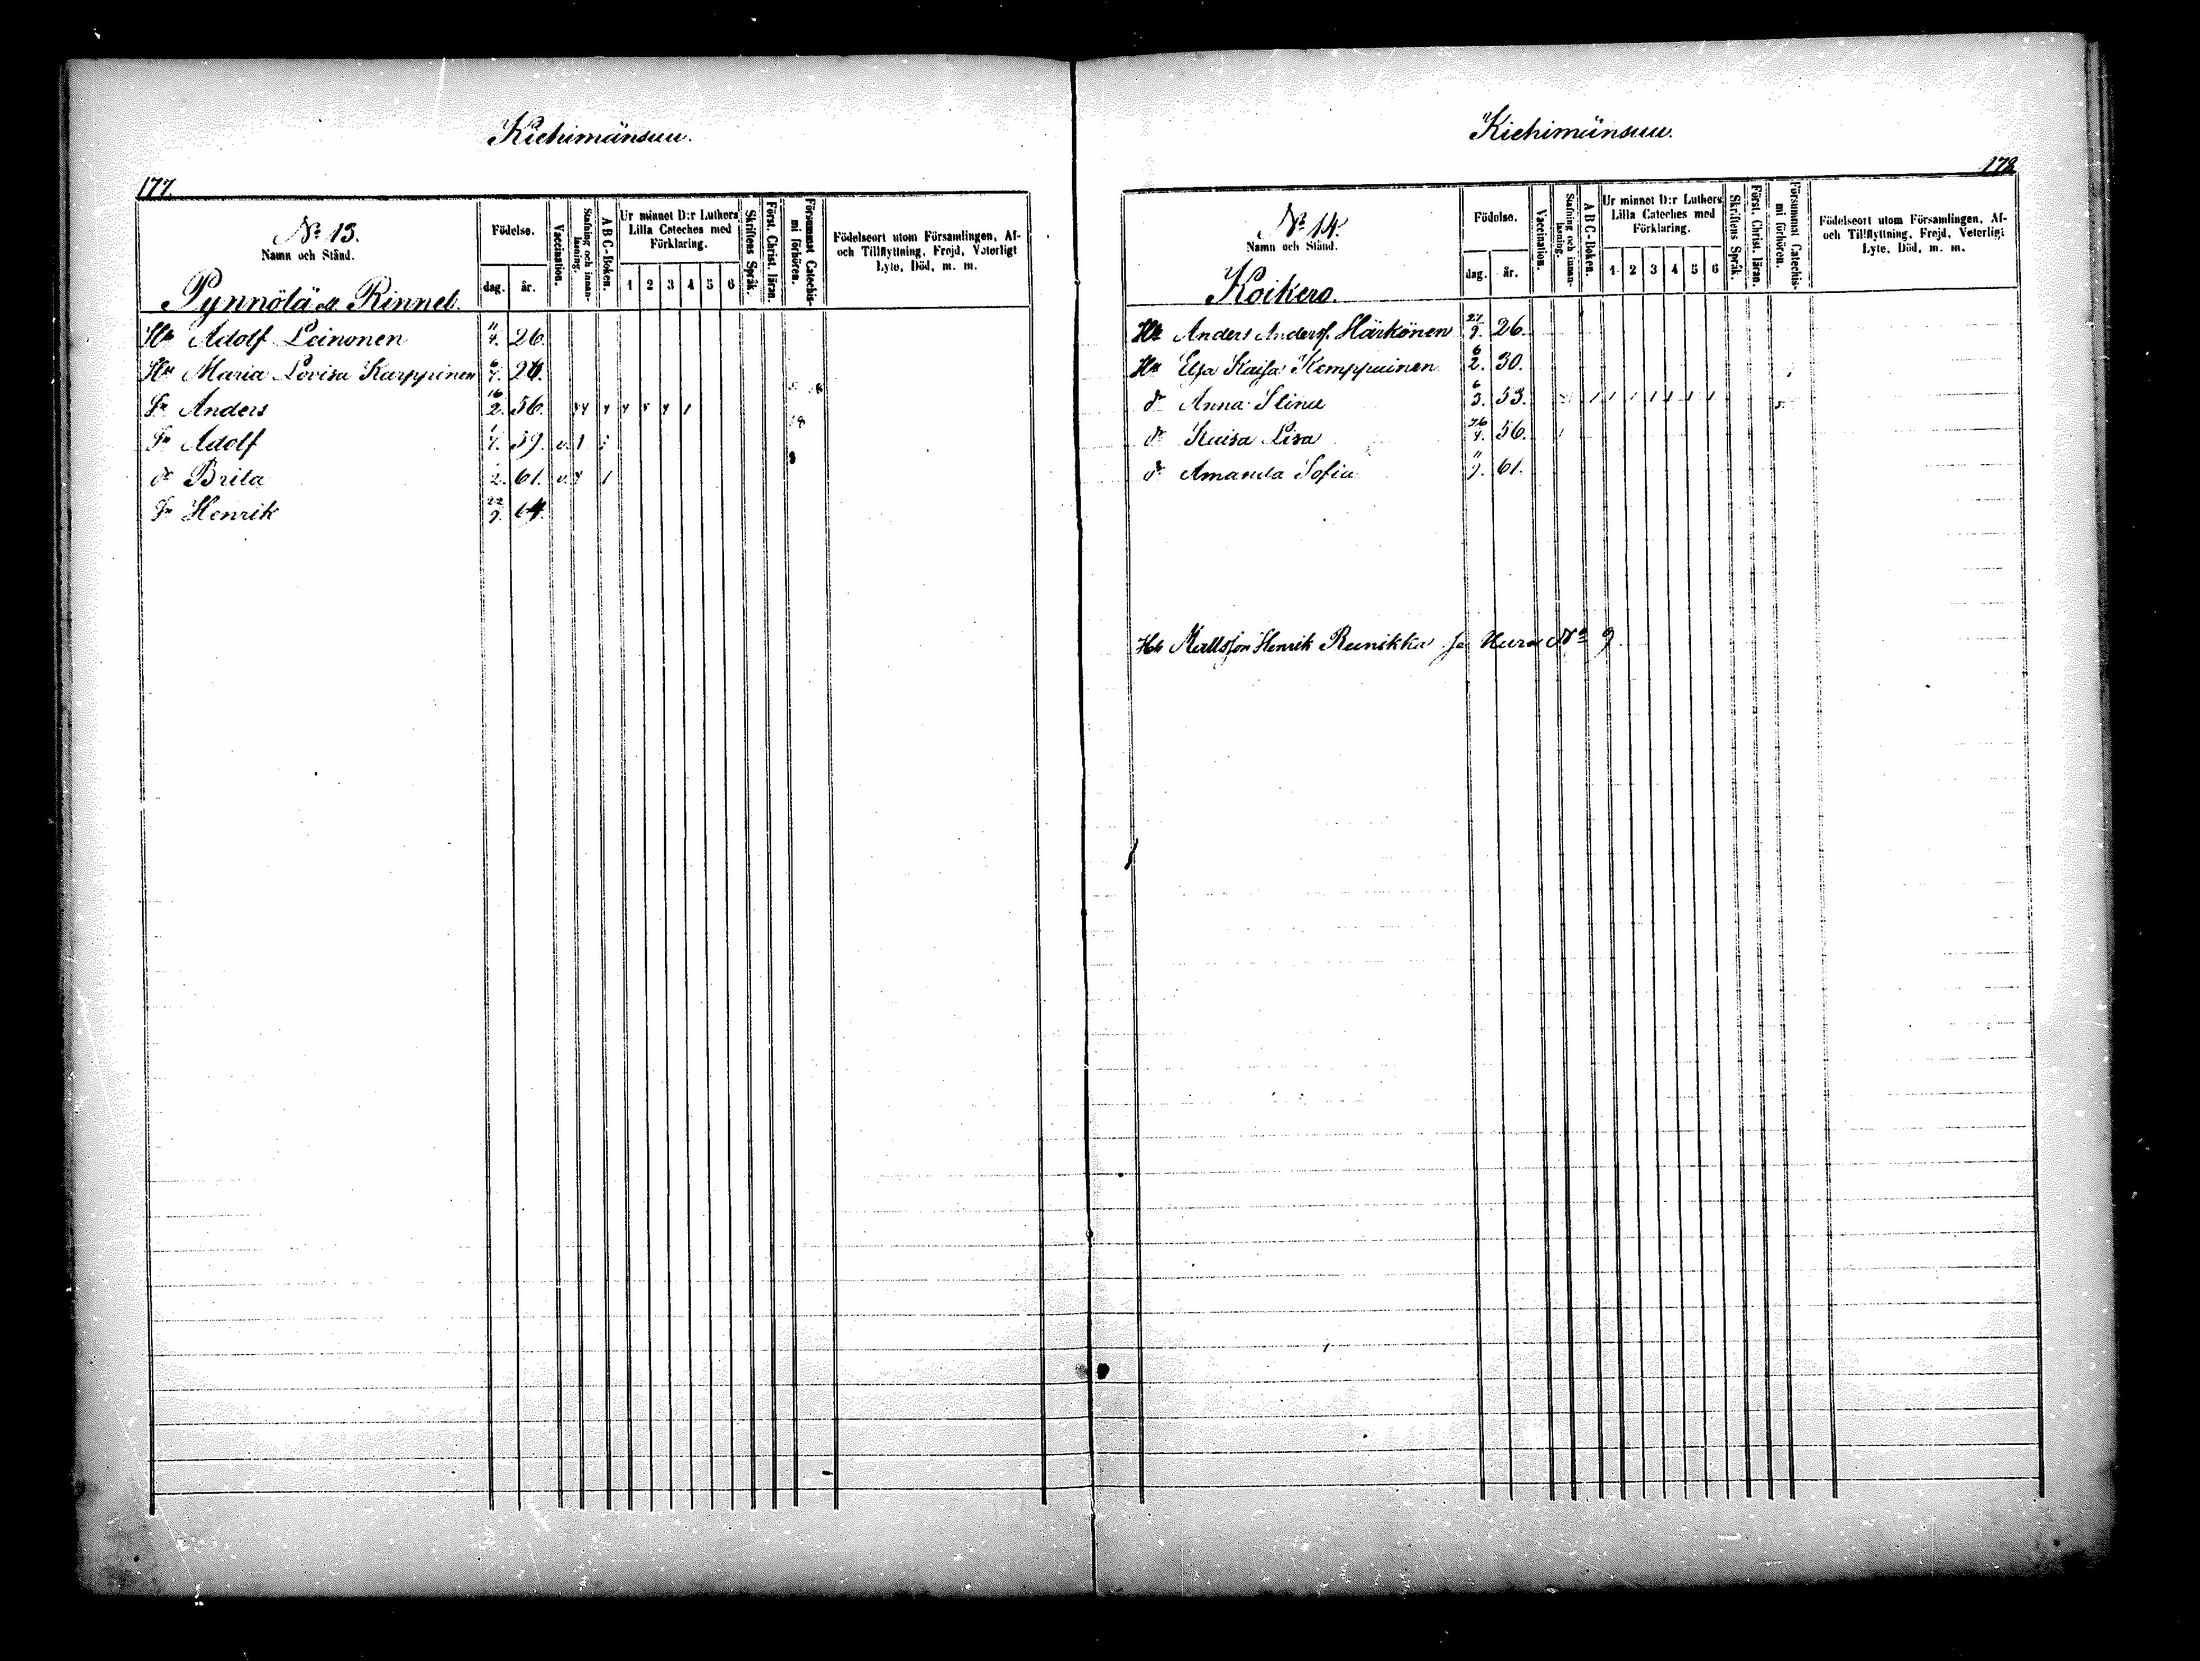 Kiehimänsuu.
177.
No 13.
Namn och Stånd.
Pynnölä ell. Rinnet.
Födelse.
dag. år.
Vaccination.
Stafning och innan-läsning.
A B C-Boken.
Ur minnet D:r Luthers
Lilla Cateches med
Förklaring.
1 2 3 4 5 6
Skriftens Språk.
Först. Christ. läran.
Försummat Catechis-
mi förhören.
Födelseort utom Församlingen, Af-
och Tillflyttning, Frejd, Veterligt
Lyte, Död, m. m.
Adolf Leinonen 26.
Maria Lovisa Karppinen
Sn Anders 16/2. 56.
Sn Adolf 59. v.
dr Brita 61. v.
Sn Henrik 22/9. 64.
Kiehimänsuu.
178
No 14.
Namn och Stånd.
Koikero.
Födelse.
dag. år.
Vaccination.
Stafning och innan-
läsning.
A B C-Boken.
Ur minnet D:r Luthers
Lilla Cateches med
Förklaring.
1 2 3 4 5 6
Skriftens Språk.
Först. Christ. läran.
Försummat Catechis-
mi förhören.
Födelseort utom Församlingen, Af-
och Tillflyttning, Frejd, Veterligt
Lyte, Död, m. m.
Anders Anderss. Härkönen 26.
Elsa Kaisa Kemppainen 6/2. 30.
dr Anna Stina 6/3. 53.
dr Kaisa Lisa 56.
dr Amanda Sofia 61.
Henrik Runikka No 9.